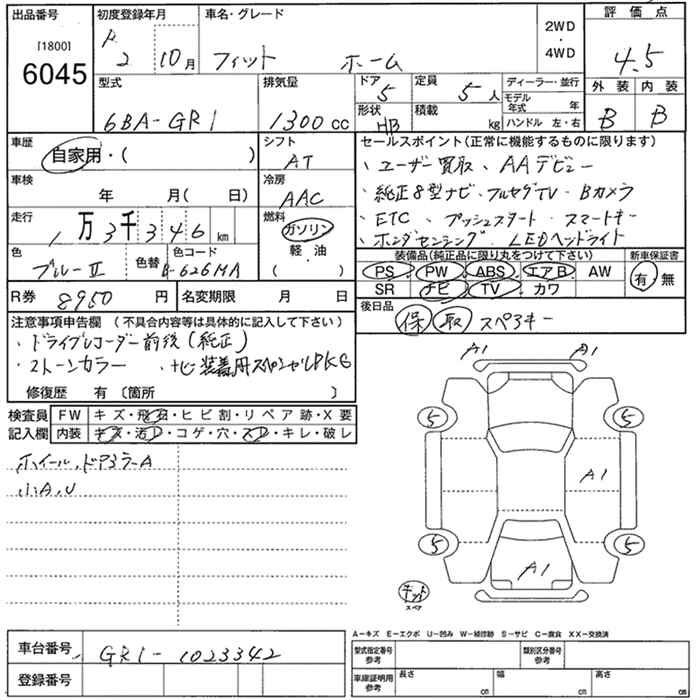 出品番号 初度登録年月 車名・グレード 2WD・4WD 評価点
[1800] 6045 R 2 10月 フィット ホーム 4.5
型式 排気量 ドア 5 定員 5人 ディーラー・並行 外装 内装
6BA-GR1 1300cc 形状 HB 積載 kg モデル年式 年 B B
ハンドル 左・右
車歴 シフト セールスポイント(正常に機能するものに限ります)
自家用・( ) AT 、ユーザー買取、AAデビュー
車検 冷房 、純正8型ナビ・フルセグTV・Bカメラ
年 月( 日) AAC 、ETC、プッシュスタート・スマートキー
走行 燃料 、ホンダセンシング・LEDヘッドライト
1万3千346km ガソリン
色 色替 色コード 軽・油 装備品(純正品に限り丸をつけて下さい) 新車保証書
ブルーⅡ B-626MA ( ) PS PW ABS エアB AW 有・無
SR ナビ TV カワ
R券 8950円 名変期限 月 日 後日品
保 取 スペアキー
注意事項申告欄 (不具合内容等は具体的に記入して下さい)
・ドライブレコーダー前後(純正)
・2トーンカラー ・ナビ装着用スペシャルPKG
修復歴 有 〔箇所 〕
検査員 FW キズ・飛石・ヒビ割・リペア跡・X要
記入欄 内装 キズ・汚レ・コゲ・穴・スレ・キレ・破レ
ホイール、ドアミラーA
小A、U
A1 A1
5 5
A1
5 5
A1
キット
スペア
A-キズ E-エクボ U-凹み W-補修跡 S-サビ C-腐食 XX-交換済
車台番号 GR1-1023342 型式指定番号 参考 類別区分番号 参考
登録番号 車庫証明用 参考 長さ cm 幅 cm 高さ cm